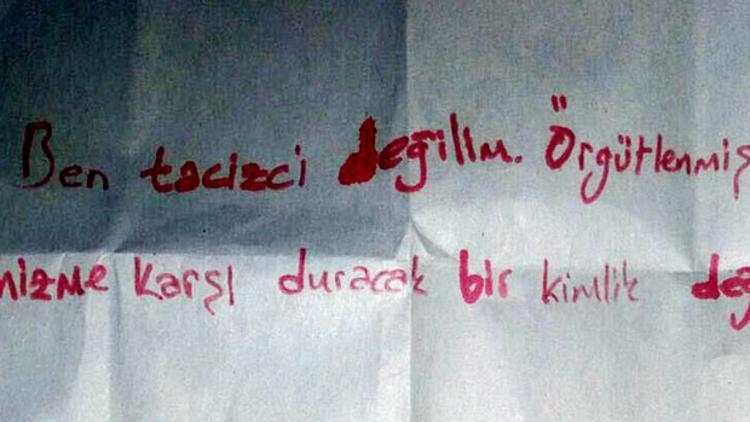 Ben tacizci değilim. Örgütlenmiş
nizme karşı duracak bir kimlik değ